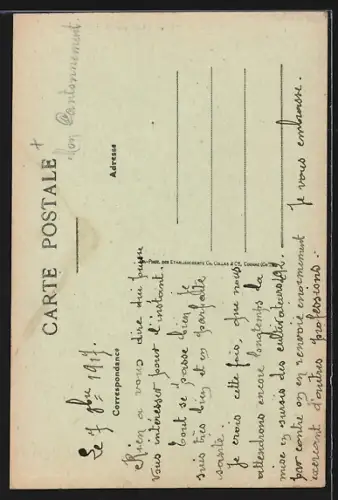 Mon Cantonnement.
CARTE POSTALE
Correspondance
Adresse
Le 7 9bre 1917.
Rien a vous dire qui puisse
vous intéresser pour l'instant.
tout se passe bien. Je
suis très bien et en parfaite
santé.
Je crois cette fois, que nous
attendrons encore longtemps la
mise en sursis des cultivateurs,
par contre on en renvoie énormément
exerçant d'autres professions.
Je vous embrasse.
Phot. des Etablissements Co. Collas & Cie, Cognac